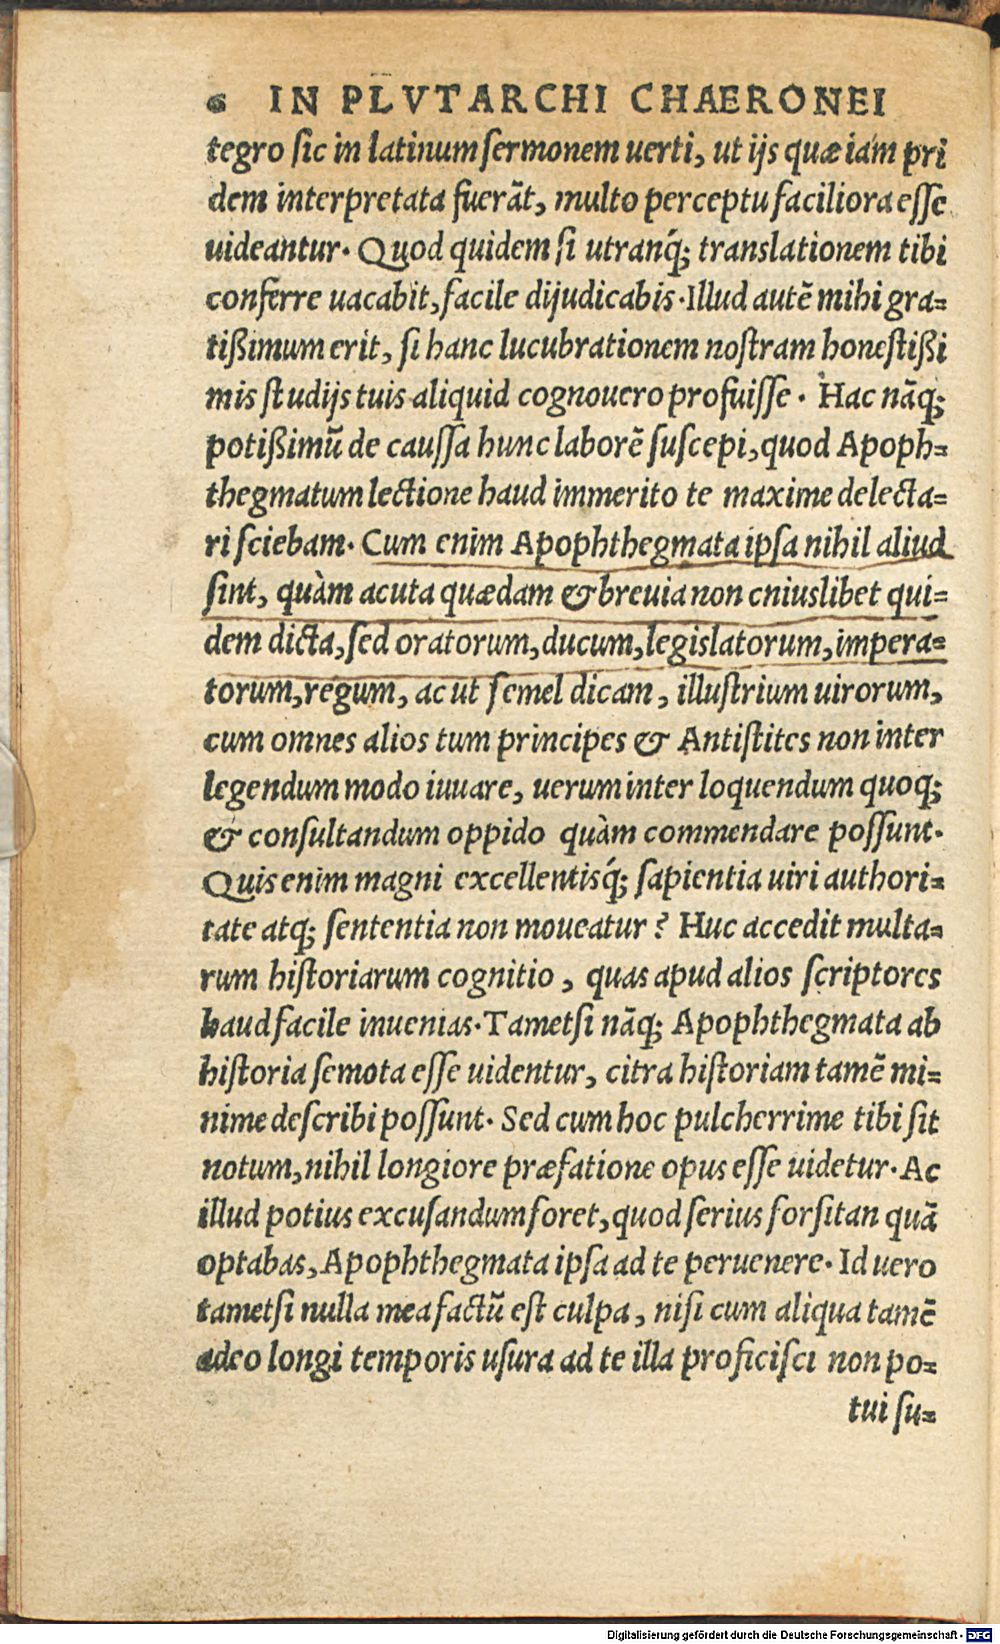 6 IN PLVTARCHI CHAERONEI
tegro ſic in latinum ſermonem uerti, ut ijs quæ iam pri
dem interpretata fuerāt, multo perceptu faciliora eſſe
uideantur. Quod quidem ſi utranq́; translationem tibi
conferre uacabit, facile dijudicabis. Illud autē mihi gra=
tißimum erit, ſi hanc lucubrationem noſtram honeſtißi
mis ſtudijs tuis aliquid cognouero profuiſſe. Hac nāq;
potißimū de cauſſa hunc laborē ſuſcepi, quod Apoph=
thegmatum lectione haud immerito te maxime delecta=
ri ſciebam. Cum enim Apophthegmata ipſa nihil aliud
ſint, quàm acuta quædam & breuia non cniuslibet qui=
dem dicta, ſed oratorum, ducum, legislatorum, impera=
torum, regum, ac ut ſemel dicam, illuſtrium uirorum,
cum omnes alios tum principes & Antiſtites non inter
legendum modo iuuare, uerum inter loquendum quoq;
& conſultandum oppido quàm commendare poſſunt.
Quis enim magni excellentisq́; ſapientia uiri authori=
tate atq; ſententia non moueatur? Huc accedit multa=
rum hiſtoriarum cognitio, quas apud alios ſcriptores
haud facile inuenias. Tametſi nāq; Apophthegmata ab
hiſtoria ſemota eſſe uidentur, citra hiſtoriam tamē mi=
nime deſcribi poſſunt. Sed cum hoc pulcherrime tibi ſit
notum, nihil longiore præfatione opus eſſe uidetur. Ac
illud potius excuſandum foret, quod ſerius forſitan quā
optabas, Apophthegmata ipſa ad te peruenere. Id uero
tametſi nulla mea factū eſt culpa, niſi cum aliqua tamē
adeo longi temporis uſura ad te illa proficiſci non po=
tui ſu=
Digitalisierung gefördert durch die Deutsche Forschungsgemeinschaft - DFG